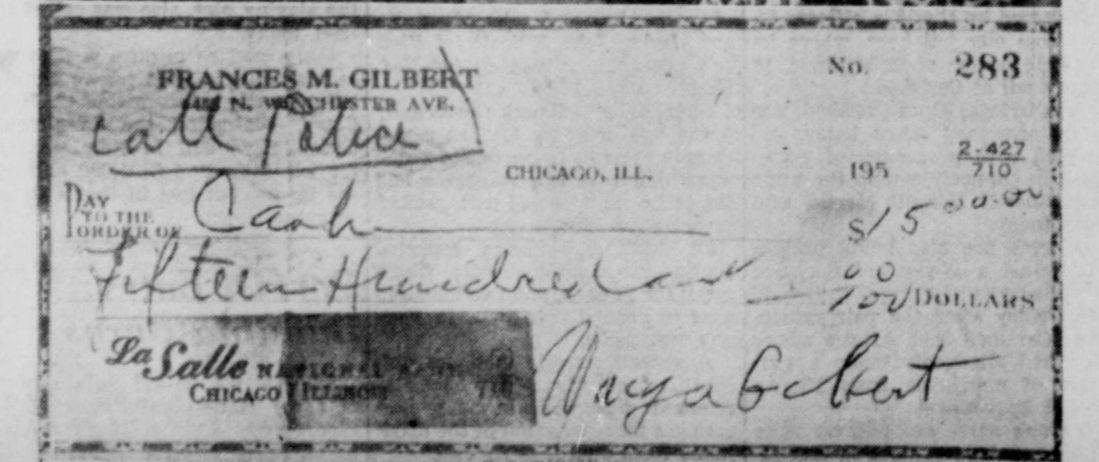 FRANCES M. GILBERT
N. WINCHESTER AVE.
No. 283
Call Police
CHICAGO, ILL. 195
2-427
710
PAY TO THE ORDER OF Cash
$1500.00
Fifteen Hundred and 00/100 DOLLARS
La Salle NATIONAL BANK
CHICAGO ILLINOIS
Gilbert